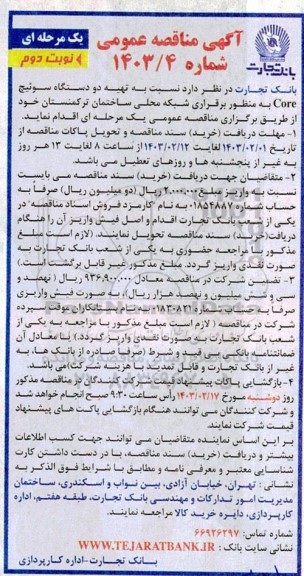 یک مرحله ای
نوبت دوم
آگهی مناقصه عمومی
شماره ۱۴۰۳/۴
بانک تجارت
بانک تجارت در نظر دارد نسبت به تهیه دو دستگاه سوئیچ
Core به منظور برقراری شبکه محلی ساختمان ترکمنستان خود
از طریق برگزاری مناقصه عمومی یک مرحله ای اقدام نماید.
۱- مهلت دریافت (خرید) سند مناقصه و تحویل پاکات مناقصه از
تاریخ ۱۴۰۳/۰۲/۰۱ لغایت ۱۴۰۳/۰۲/۱۲ از ساعت ۸ لغایت ۱۳ هر روز
به غیر از پنجشنبه ها و روزهای تعطیل می باشد.
۲- متقاضیان جهت دریافت (خرید) سند مناقصه می بایست
نسبت به واریز مبلغ ۲.۰۰۰.۰۰۰ ریال (دو میلیون ریال) صرفاً به
حساب شماره ۰۱۸۵۴۸۸۷ به نام "کارمزد فروش اسناد مناقصه" در
یکی از شعب بانک تجارت اقدام و اصل فیش واریز آن را هنگام
دریافت (خرید) سند مناقصه تحویل نمایند. (لازم است مبلغ
مذکور با مراجعه حضوری به یکی از شعب بانک تجارت به
صورت نقدی واریز گردد. مبلغ مذکور غیر قابل برگشت است.)
۳- تضمین شرکت در مناقصه معادل ۹۳۶.۹۰۰.۰۰۰ ریال (نهصد و
سی و شش میلیون و نهصد هزار ریال) به صورت فیش واریزی
صرفاً به حساب شماره ۰۱۸۳۰۸۳۱ به نام "بستانکاران موقت سپرده
شرکت در مناقصه" (لازم است مبلغ مذکور با مراجعه به یکی از
شعب بانک تجارت به صورت نقدی واریز گردد.) یا معادل آن
ضمانتنامه بانکی بی قید و شرط (صرفاً صادره از بانک ها، به
غیر از بانک تجارت و قابل تمدید با هزینه شرکت) می باشد.
۴- بازگشایی پاکات پیشنهاد قیمت شرکت کنندگان در مناقصه مذکور
روز دوشنبه مورخ ۱۴۰۳/۰۲/۱۷ رأس ساعت ۹:۳۰ صبح انجام خواهد شد
و شرکت کنندگان می توانند هنگام بازگشایی پاکت های پیشنهاد
قیمت شرکت نمایند.
بر این اساس نماینده متقاضیان می توانند جهت کسب اطلاعات
بیشتر و دریافت (خرید) سند مناقصه، با در دست داشتن کارت
شناسایی معتبر و معرفی نامه و مطابق با شرایط فوق الذکر به
نشانی: تهران، خیابان آزادی، بین نواب و اسکندری، ساختمان
مدیریت امور تدارکات و مهندسی بانک تجارت، طبقه هفتم، اداره
کارپردازی، دایره خرید کالا مراجعه نمایند.
شماره تماس: ۶۶۹۲۶۲۹۷
نشانی سایت بانک: WWW.TEJARATBANK.IR
بانک تجارت-اداره کارپردازی